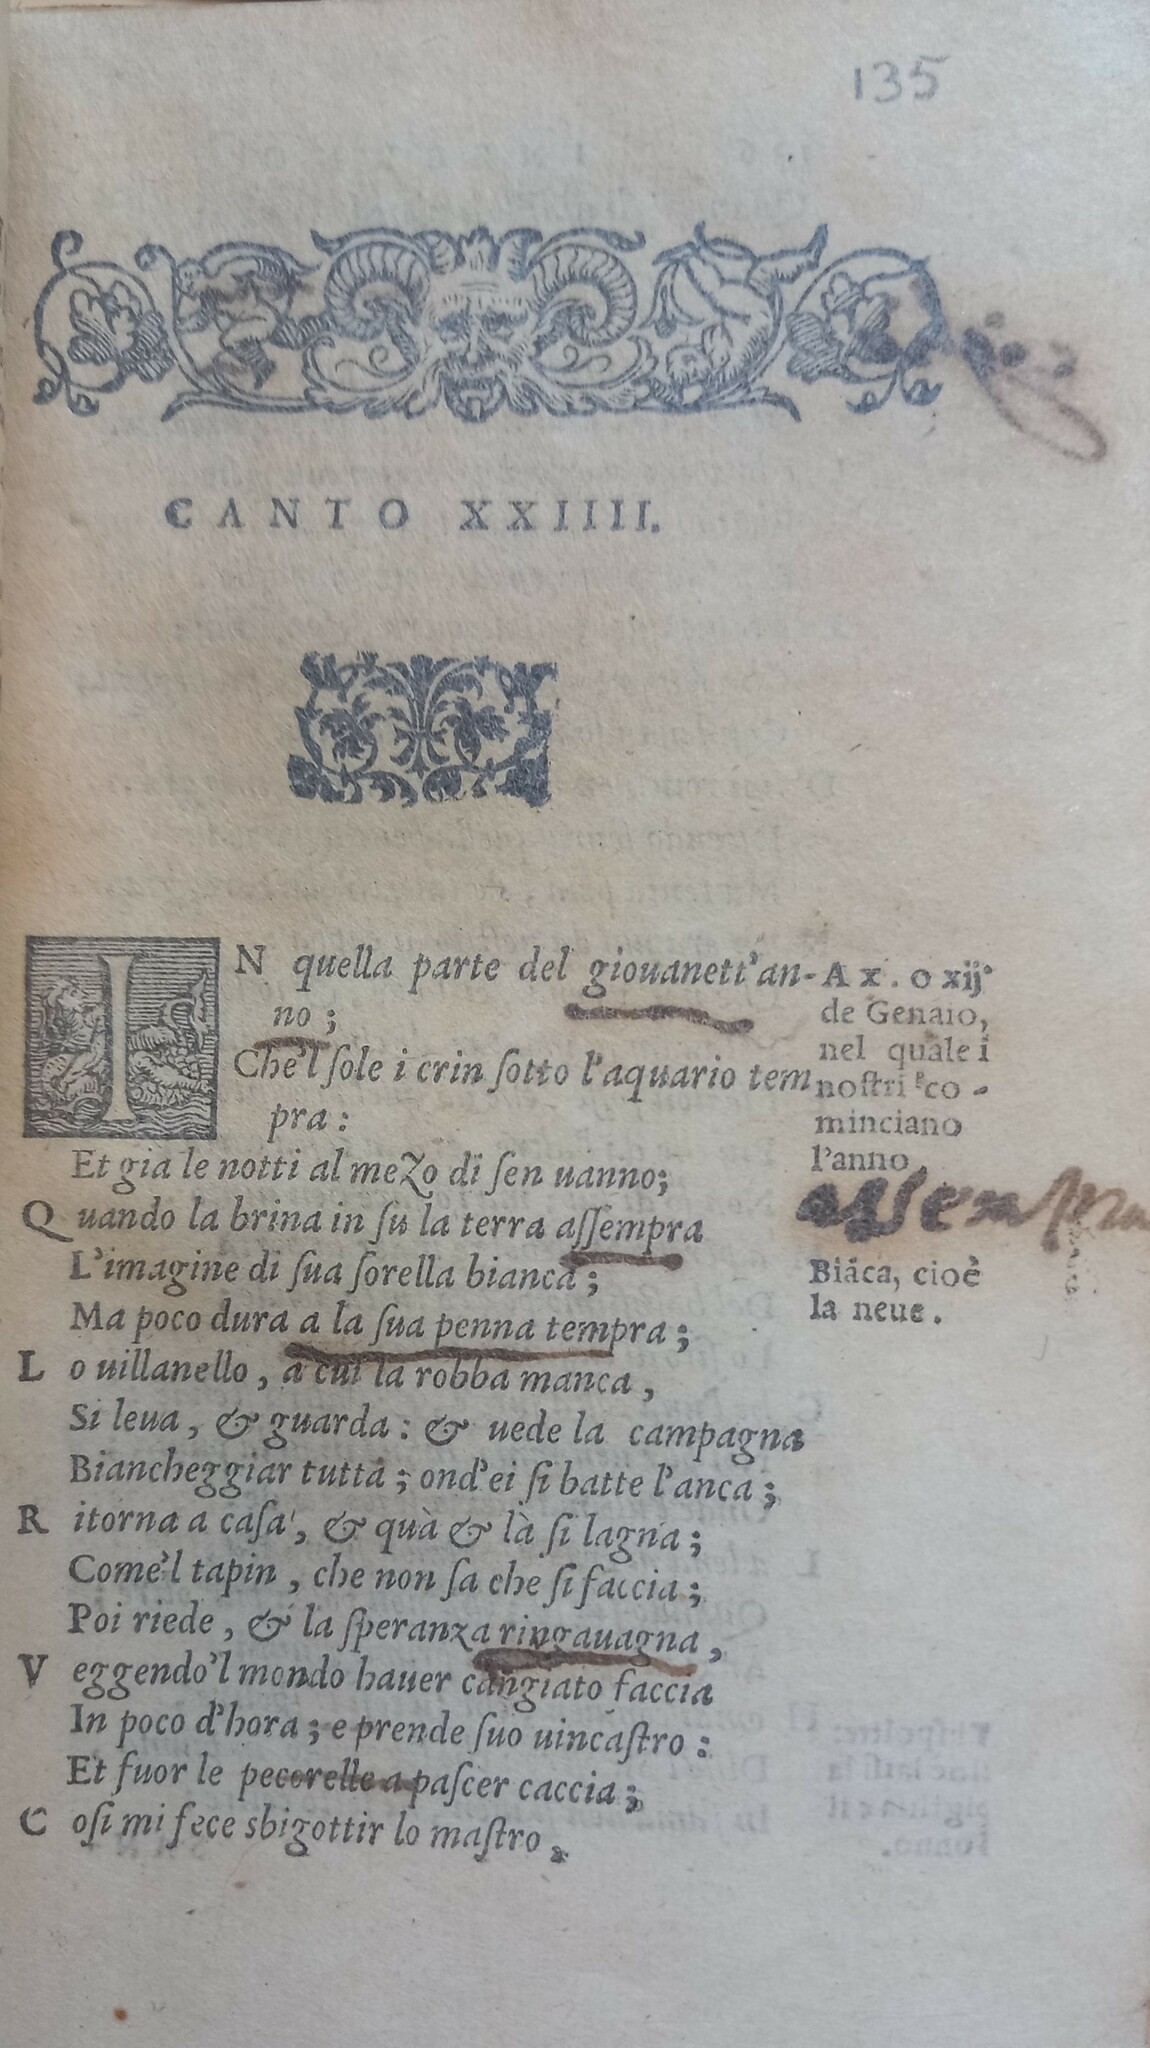 135
CANTO XXIIII.
IN quella parte del giouanett'an-
no;
Che'l ſole i crin ſotto l'aquario tem
pra:
Et gia le notti al mezo di ſen uanno;
Quando la brina in ſu la terra aſſempra
L'imagine di ſua ſorella bianca;
Ma poco dura a la ſua penna tempra;
Lo uillanello, a cui la robba manca,
Si leua, & guarda: & uede la campagna
Biancheggiar tutta; ond'ei ſi batte l'anca;
Ritorna a caſa, & quà & là ſi lagna;
Come'l tapin, che non ſa che ſi faccia;
Poi riede, & la ſperanza ringauagna,
Veggendo'l mondo hauer cangiato faccia
In poco d'hora; e prende ſuo uincaſtro:
Et fuor le pecorelle a paſcer caccia;
Coſi mi fece sbigottir lo maſtro,
A x. o xij
de Genaio,
nel quale i
noſtri co-
minciano
l'anno.
assempra
Biāca, cioè
la neue.